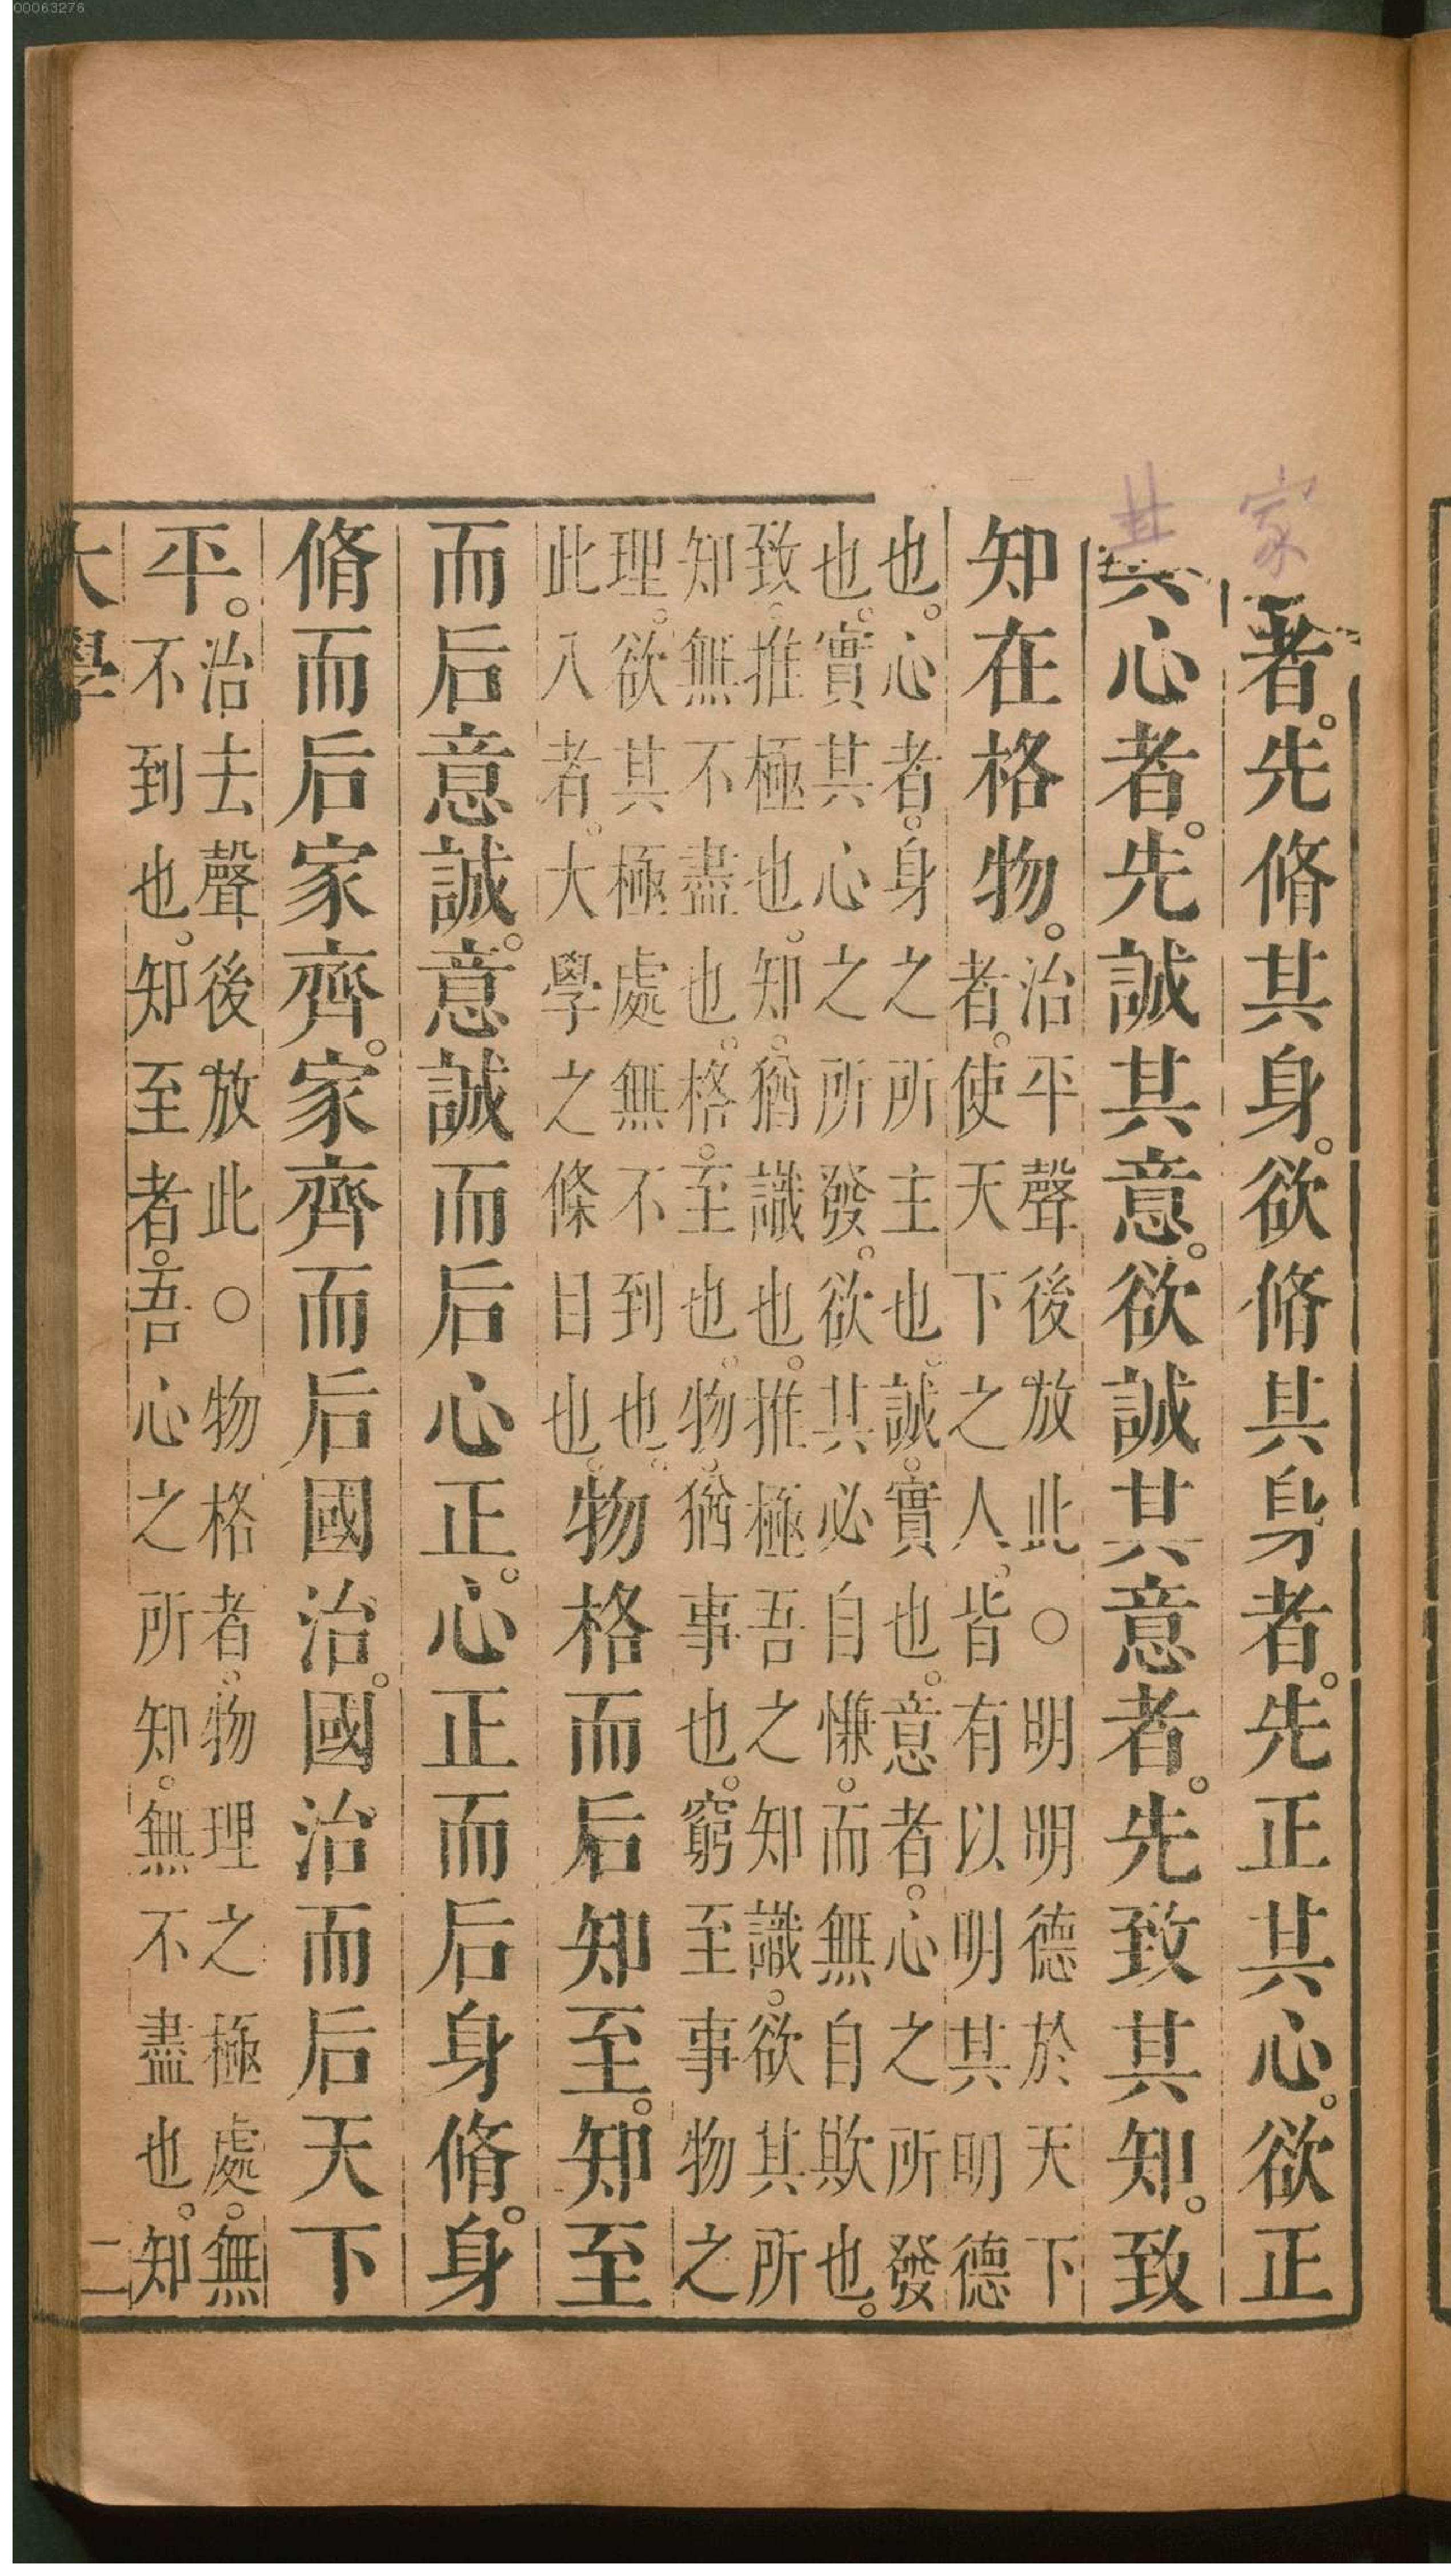 00063276
家者。先脩其身。欲脩其身者。先正其心。欲正
其心者。先誠其意。欲誠其意者。先致其知。致
知在格物。
治平聲後放此○明明德於天下
者。使天下之人。皆有以明其明德
也。心者。身之所主也。誠。實也。意者。心之所發
也。實其心之所發。欲其必自慊。而無自欺也。
致。推極也。知。猶識也。推極吾之知識。欲其所
知無不盡也。格。至也。物。猶事也。窮至事物之
理。欲其極處無不到也。
此八者。大學之條目也。
物格而后知至。知至
而后意誠。意誠而后心正。心正而后身脩。身
脩而后家齊。家齊而后國治。國治而后天下
平。
治去聲後放此○物格者。物理之極處。無
不到也。知至者。吾心之所知。無不盡也。知
大學 二